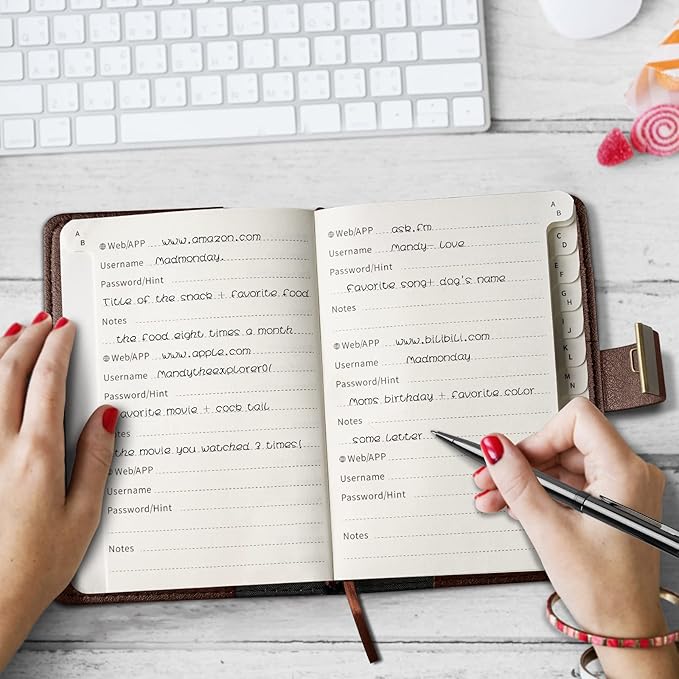 A
B
Web/APP www.amazon.com
Username Madmonday.
Password/Hint
Title of the snack + favorite food
Notes
the food eight times a month
Web/APP www.apple.com
Username Mandytheexplorer01
Password/Hint
avorite movie + cock tail
Notes
the movie you watched 3 times(
Web/APP
Username
Password/Hint
Notes
Web/APP ask.fm
Username Mandy- love
Password/Hint
favorite song+ dog's name
Notes
Web/APP www.bilibili.com
Username Madmonday
Password/Hint
Moms birthday + favorite color
Notes
some letter
Web/APP
Username
Password/Hint
Notes
A
B
C
D
E
F
G
H
I
J
K
L
M
N